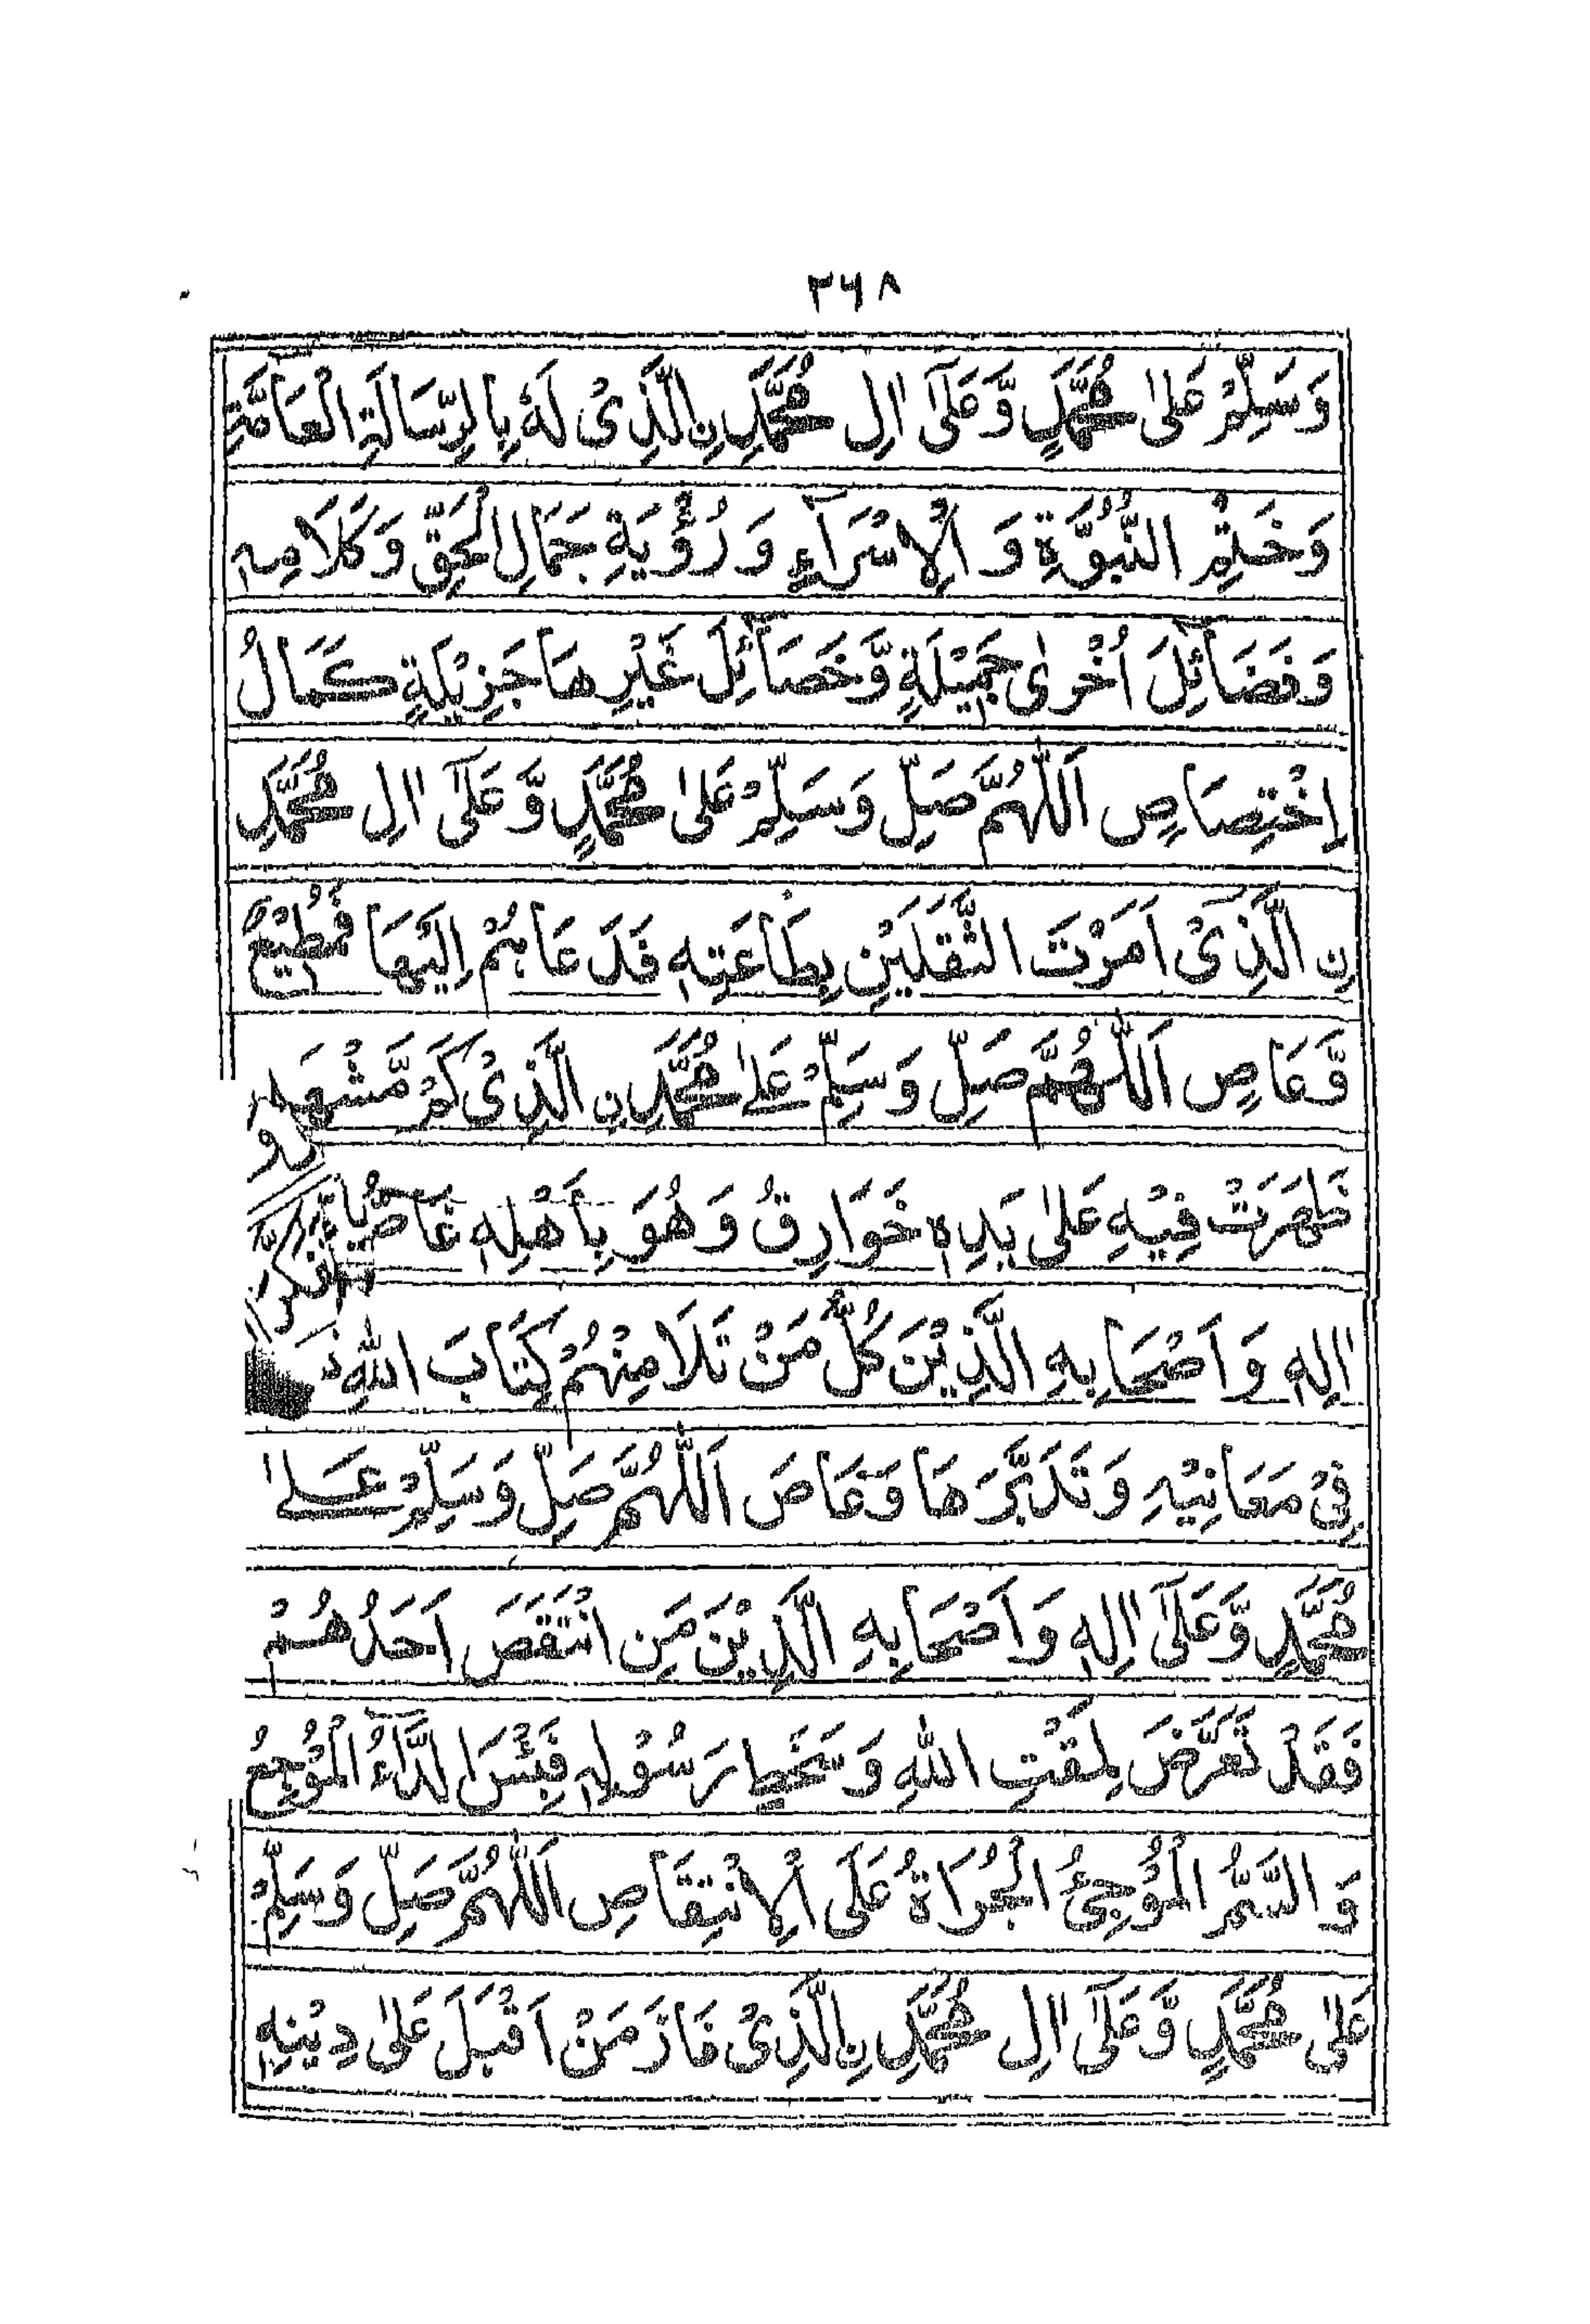 ۲۶۸
وَسَلِّمْ عَلٰى مُحَمَّدٍ وَّعَلٰٓى اٰلِ مُحَمَّدِ نِ الَّذِىْ لَهٗ بِالرِّسَالَةِ الْعَامَّةِ
وَخَتْمِ النُّبُوَّةِ وَ الْاِسْرَآءِ وَ رُؤْيَةِ جَمَالِ الْحَقِّ وَكَلَامِهٖ
وَفَضَآئِلَ اُخْرٰى جَمِيْلَةٍ وَّخَصَآئِلَ غَيْرِهَا جَزِيْلَةٍ كَمَالُ
اِخْتِصَاصٍ اَللّٰهُمَّ صَلِّ وَسَلِّمْ عَلٰى مُحَمَّدٍ وَّعَلٰٓى اٰلِ مُحَمَّدِ
نِ الَّذِىْٓ اَمَرْتَ الثَّقَلَيْنِ بِطَاعَتِهٖ فَدَعَاهُمْ اِلَيْهَا فَمُطِيْعٌ
وَّعَاصٍ اَللّٰهُمَّ صَلِّ وَسَلِّمْ عَلٰى مُحَمَّدِ نِ الَّذِىْ كَمْ مَّشْهَدٍ
ظَهَرَتْ فِيْهِ عَلٰى يَدِهٖ خَوَارِقُ وَهُوَ بِاَهْلِهٖ غَاصٌّ
اٰلِهٖ وَاَصْحَابِهِ الَّذِيْنَ كُلُّ مَنْ تَلَا مِنْهُمْ كِتَابَ اللّٰهِ
فِىْ مَعَانِيْهِ وَتَدَبَّرَهَا وَغَاصَ اَللّٰهُمَّ صَلِّ وَسَلِّمْ عَلٰى
مُحَمَّدٍ وَّعَلٰٓى اٰلِهٖ وَاَصْحَابِهِ الَّذِيْنَ مَنِ انْتَقَصَ اَحَدَهُمْ
فَقَدْ تَعَرَّضَ لِمَقْتِ اللّٰهِ وَسَخَطِ رَسُوْلِهٖ فَبِئْسَ الدَّآءُ الْمُوْجِعُ
وَ السَّمُّ الْمُوْجِئُ الْجُرَاةُ عَلَى الْاِنْتِقَاصِ اَللّٰهُمَّ صَلِّ وَسَلِّمْ
عَلٰى مُحَمَّدٍ وَّعَلٰٓى اٰلِ مُحَمَّدِ نِ الَّذِىْ فَازَ مَنْ اَقْبَلَ عَلٰى دِيْنِهٖ